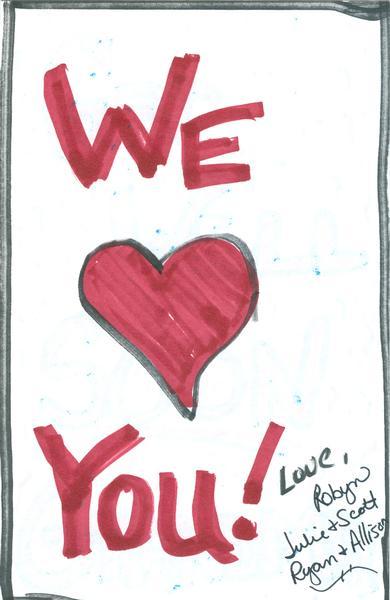 WE
YOU!
LOVE,
Robyn
Julie + Scott
Ryan + Allison